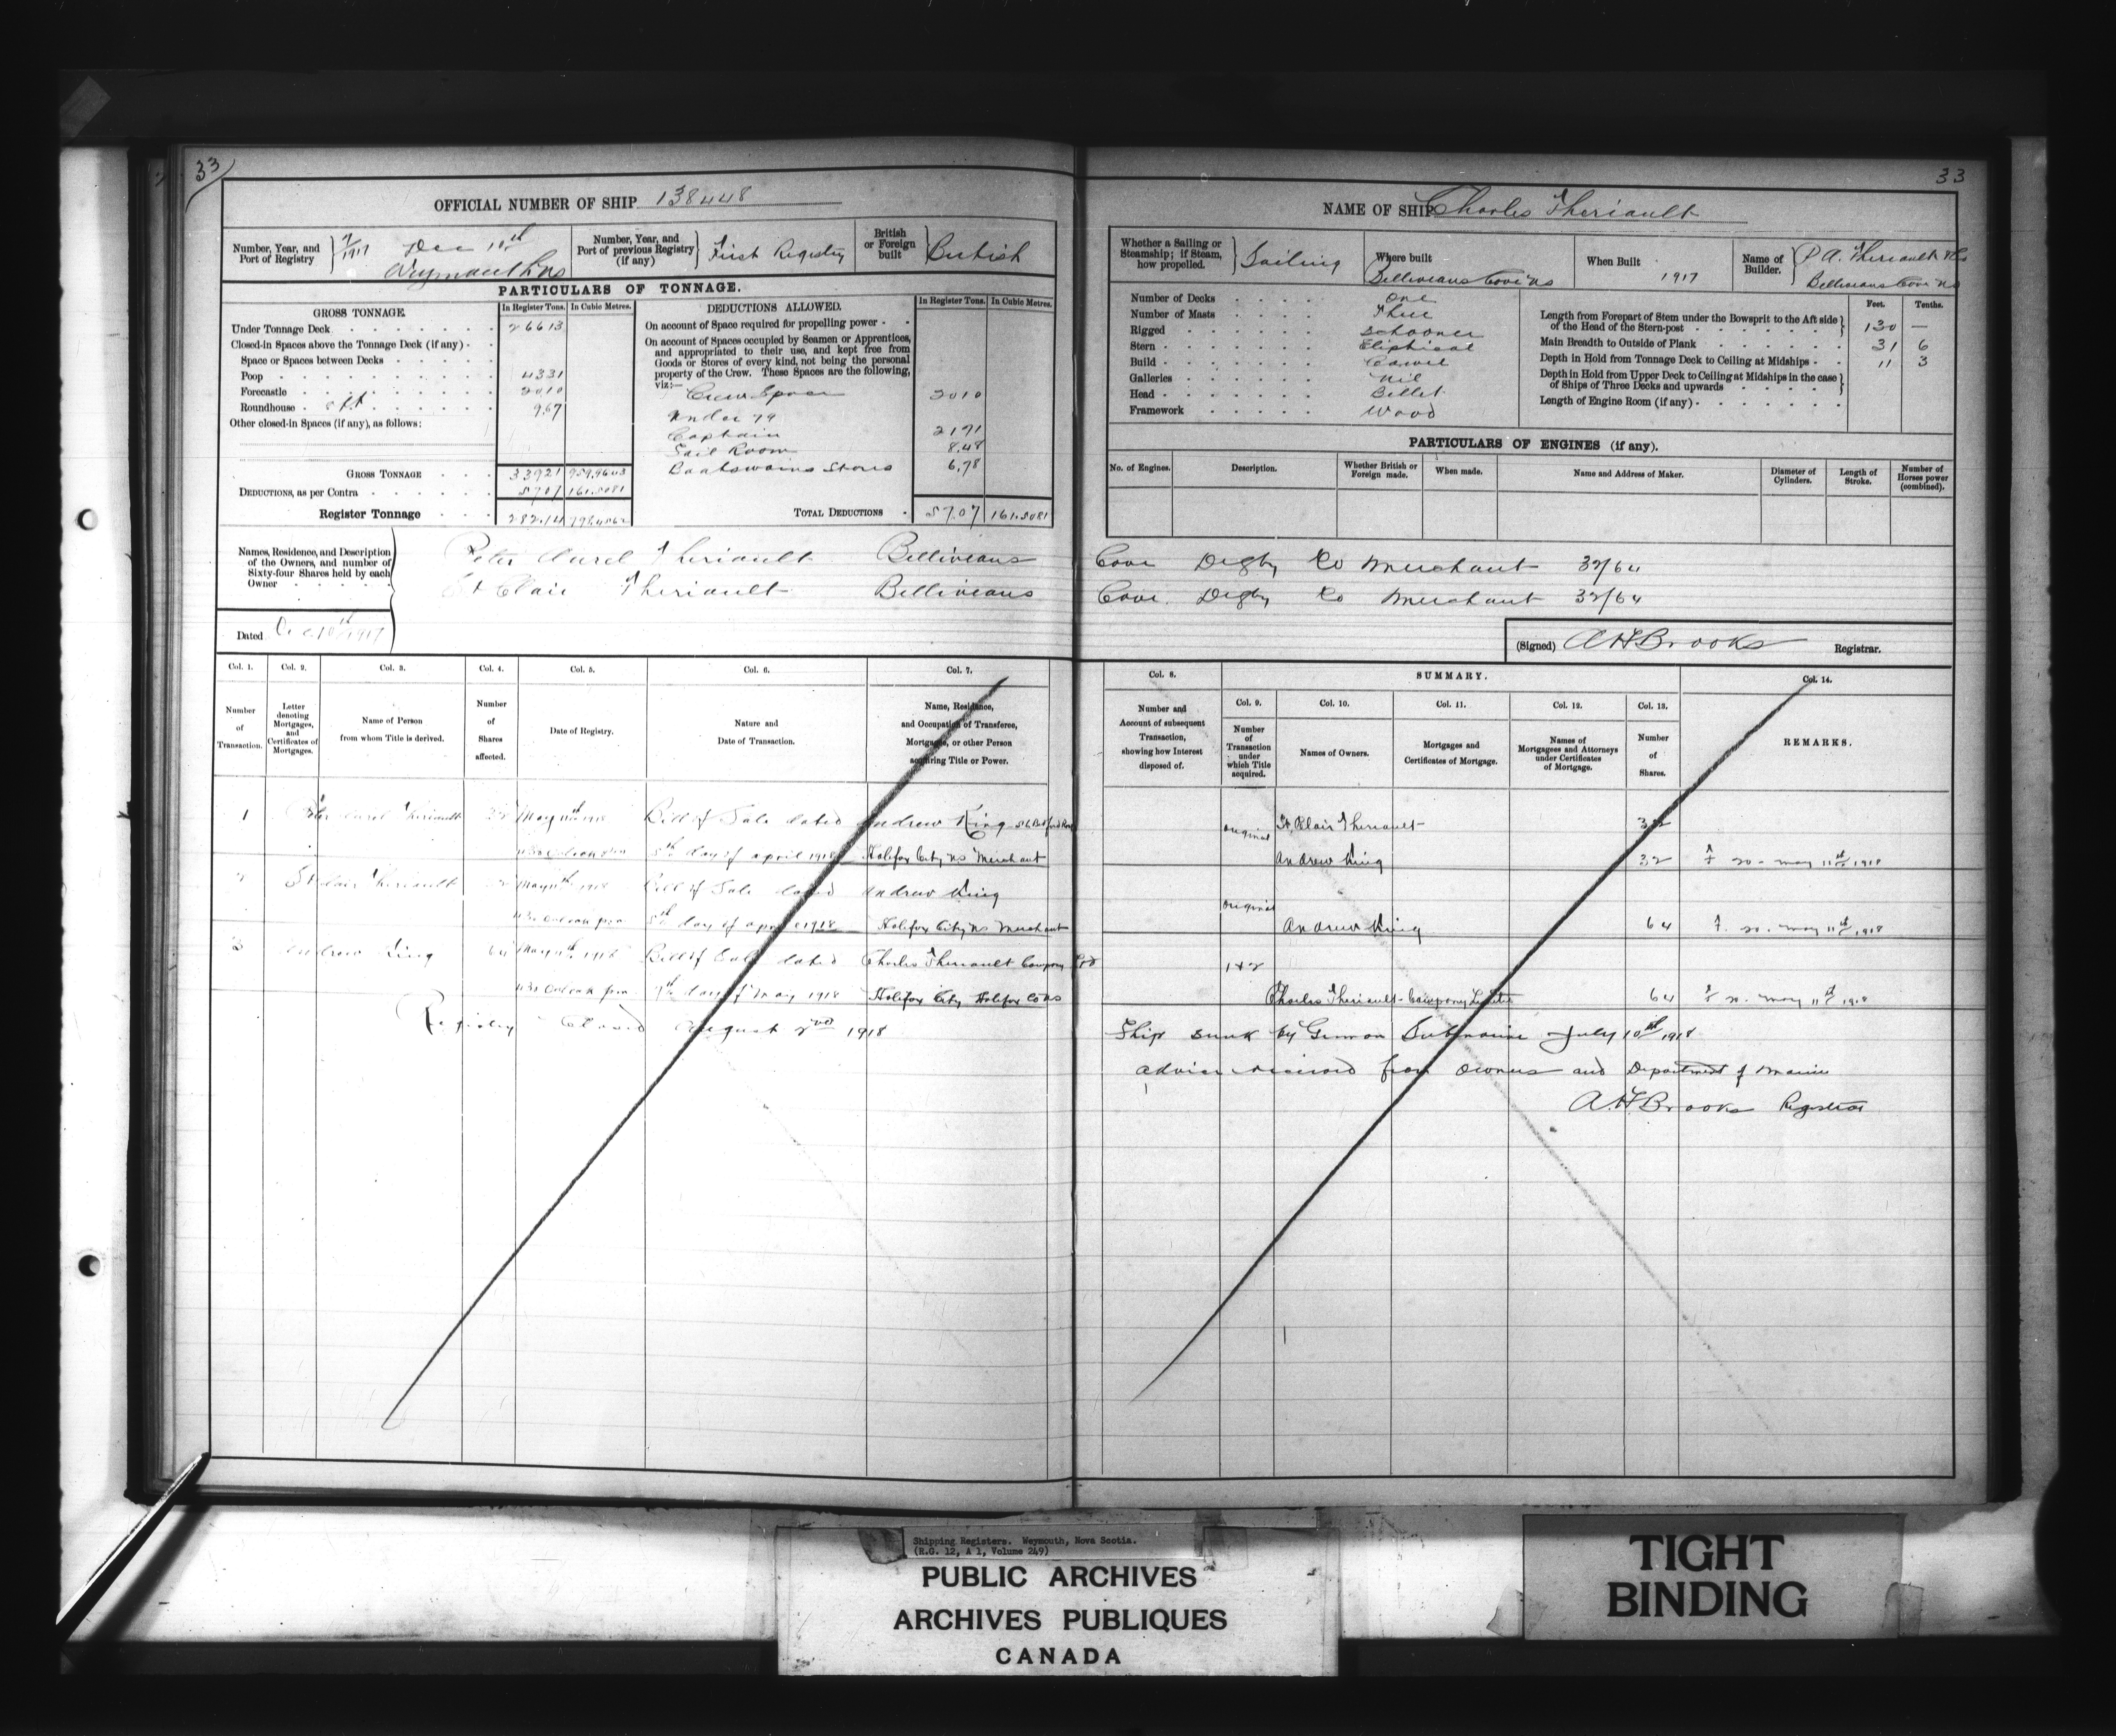 33
33
OFFICIAL NUMBER OF SHIP 138448
NAME OF SHIP Charles Theriault
Number, Year, and Port of Registry
1917 Dec 10th
Weymouth NS
Number, Year, and Port of previous Registry (if any)
First Registry
British or Foreign built
British
Whether a Sailing or Steamship; if Steam, how propelled.
Sailing
Where built
Belliveaus Cove NS
When Built
1917
Name of Builder.
P A. Theriault
Belliveaus Cove NS
PARTICULARS OF TONNAGE.
GROSS TONNAGE.
In Register Tons.
In Cubic Metres.
Under Tonnage Deck 26613
Closed-in Spaces above the Tonnage Deck (if any)
Space or Spaces between Decks
Poop 4331
Forecastle 2010
Roundhouse 967
Other closed-in Spaces (if any), as follows:
GROSS TONNAGE 33921 959.9603
DEDUCTIONS, as per Contra 5707 161.5081
Register Tonnage 282.14
DEDUCTIONS ALLOWED.
In Register Tons.
In Cubic Metres.
On account of Space required for propelling power
On account of Spaces occupied by Seamen or Apprentices, and appropriated to their use, and kept free from Goods or Stores of every kind, not being the personal property of the Crew. These Spaces are the following, viz:—
Crew Space 2010
Under 79
Captain 2191
Sail Room 8.48
Boatswains Stores 6.98
TOTAL DEDUCTIONS 57.07 161.5081
Number of Decks One
Number of Masts Three
Rigged Schooner
Stern Eliptical
Build Carvel
Galleries Nil
Head Billet
Framework Wood
Feet. Tenths.
Length from Forepart of Stem under the Bowsprit to the Aft side of the Head of the Stern-post 130 —
Main Breadth to Outside of Plank 31 6
Depth in Hold from Tonnage Deck to Ceiling at Midships 11 3
Depth in Hold from Upper Deck to Ceiling at Midships in the case of Ships of Three Decks and upwards
Length of Engine Room (if any)
PARTICULARS OF ENGINES (if any).
No. of Engines.
Description.
Whether British or Foreign made.
When made.
Name and Address of Maker.
Diameter of Cylinders.
Length of Stroke.
Number of Horses power (combined).
Names, Residence, and Description of the Owners, and number of Sixty-four Shares held by each Owner
Peter Aurel Theriault Belliveaus Cove Digby Co Merchant 32/64
St Clair Theriault Belliveaus Cove Digby Co Merchant 32/64
Dated Dec 10th 1917
(Signed) A H Brooks Registrar.
Col. 1. Col. 2. Col. 3. Col. 4. Col. 5. Col. 6. Col. 7.
Number of Transaction.
Letter denoting Mortgages, and Certificates of Mortgages.
Name of Person from whom Title is derived.
Number of Shares affected.
Date of Registry.
Nature and Date of Transaction.
Name, Residence, and Occupation of Transferee, Mortgagee, or other Person acquiring Title or Power.
Col. 8.
Number and Account of subsequent Transaction, showing how Interest disposed of.
SUMMARY.
Col. 9. Col. 10. Col. 11. Col. 12. Col. 13. Col. 14.
Number of Transaction under which Title acquired.
Names of Owners.
Mortgages and Certificates of Mortgage.
Names of Mortgagees and Attorneys under Certificates of Mortgage.
Number of Shares.
REMARKS.
1 Peter Aurel Theriault 32 May 11th 1918 Bill of Sale dated Andrew King
original St. Clair Theriault 32
5th day of April 1918 Halifax City NS Merchant
Andrew King 32 May 11th 1918
2 St Clair Theriault 32 May 11th 1918 Bill of Sale dated Andrew King
original
5th day of April 1918 Halifax City NS Merchant
Andrew King 64 May 11th 1918
3 Andrew King 64 May 11th 1918 Bill of Sale dated Charles Theriault Company Ltd
1+2
9th day of May 1918 Halifax City Halifax Co NS
Charles Theriault Company Limited 64 May 11th 1918
Registry Closed August 2nd 1918
Ship sunk by German Submarine July 10th 1918
advice received from Owners and Department of Marine
A.H Brooks Registrar
Shipping Registers. Weymouth, Nova Scotia.
(R.G. 12, A 1, Volume 249)
PUBLIC ARCHIVES
ARCHIVES PUBLIQUES
CANADA
TIGHT
BINDING